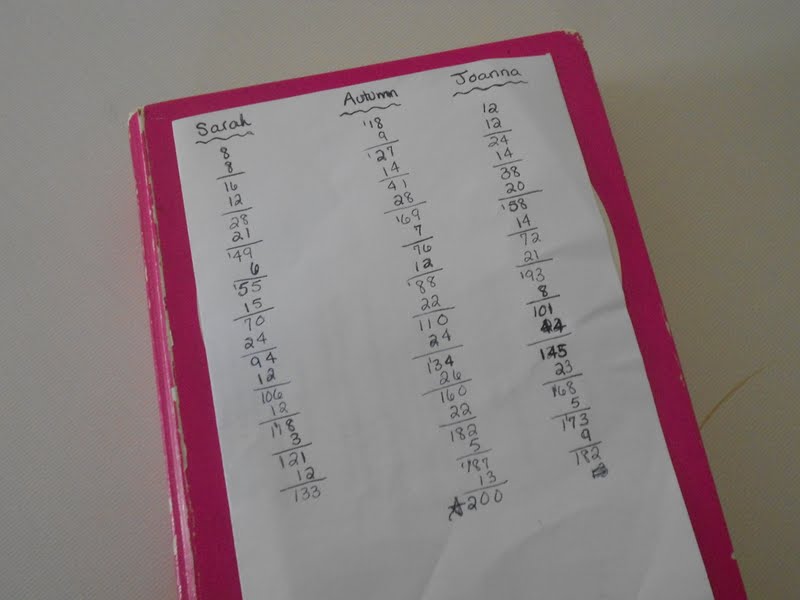 Sarah
8
8
16
12
28
21
49
6
55
15
70
24
94
12
106
12
118
3
121
12
133
Autumn
18
9
27
14
41
28
69
7
76
12
88
22
110
24
134
26
160
22
182
5
187
13
☆200
Joanna
12
12
24
14
38
20
58
14
72
21
93
8
101
44
145
23
168
5
173
9
182